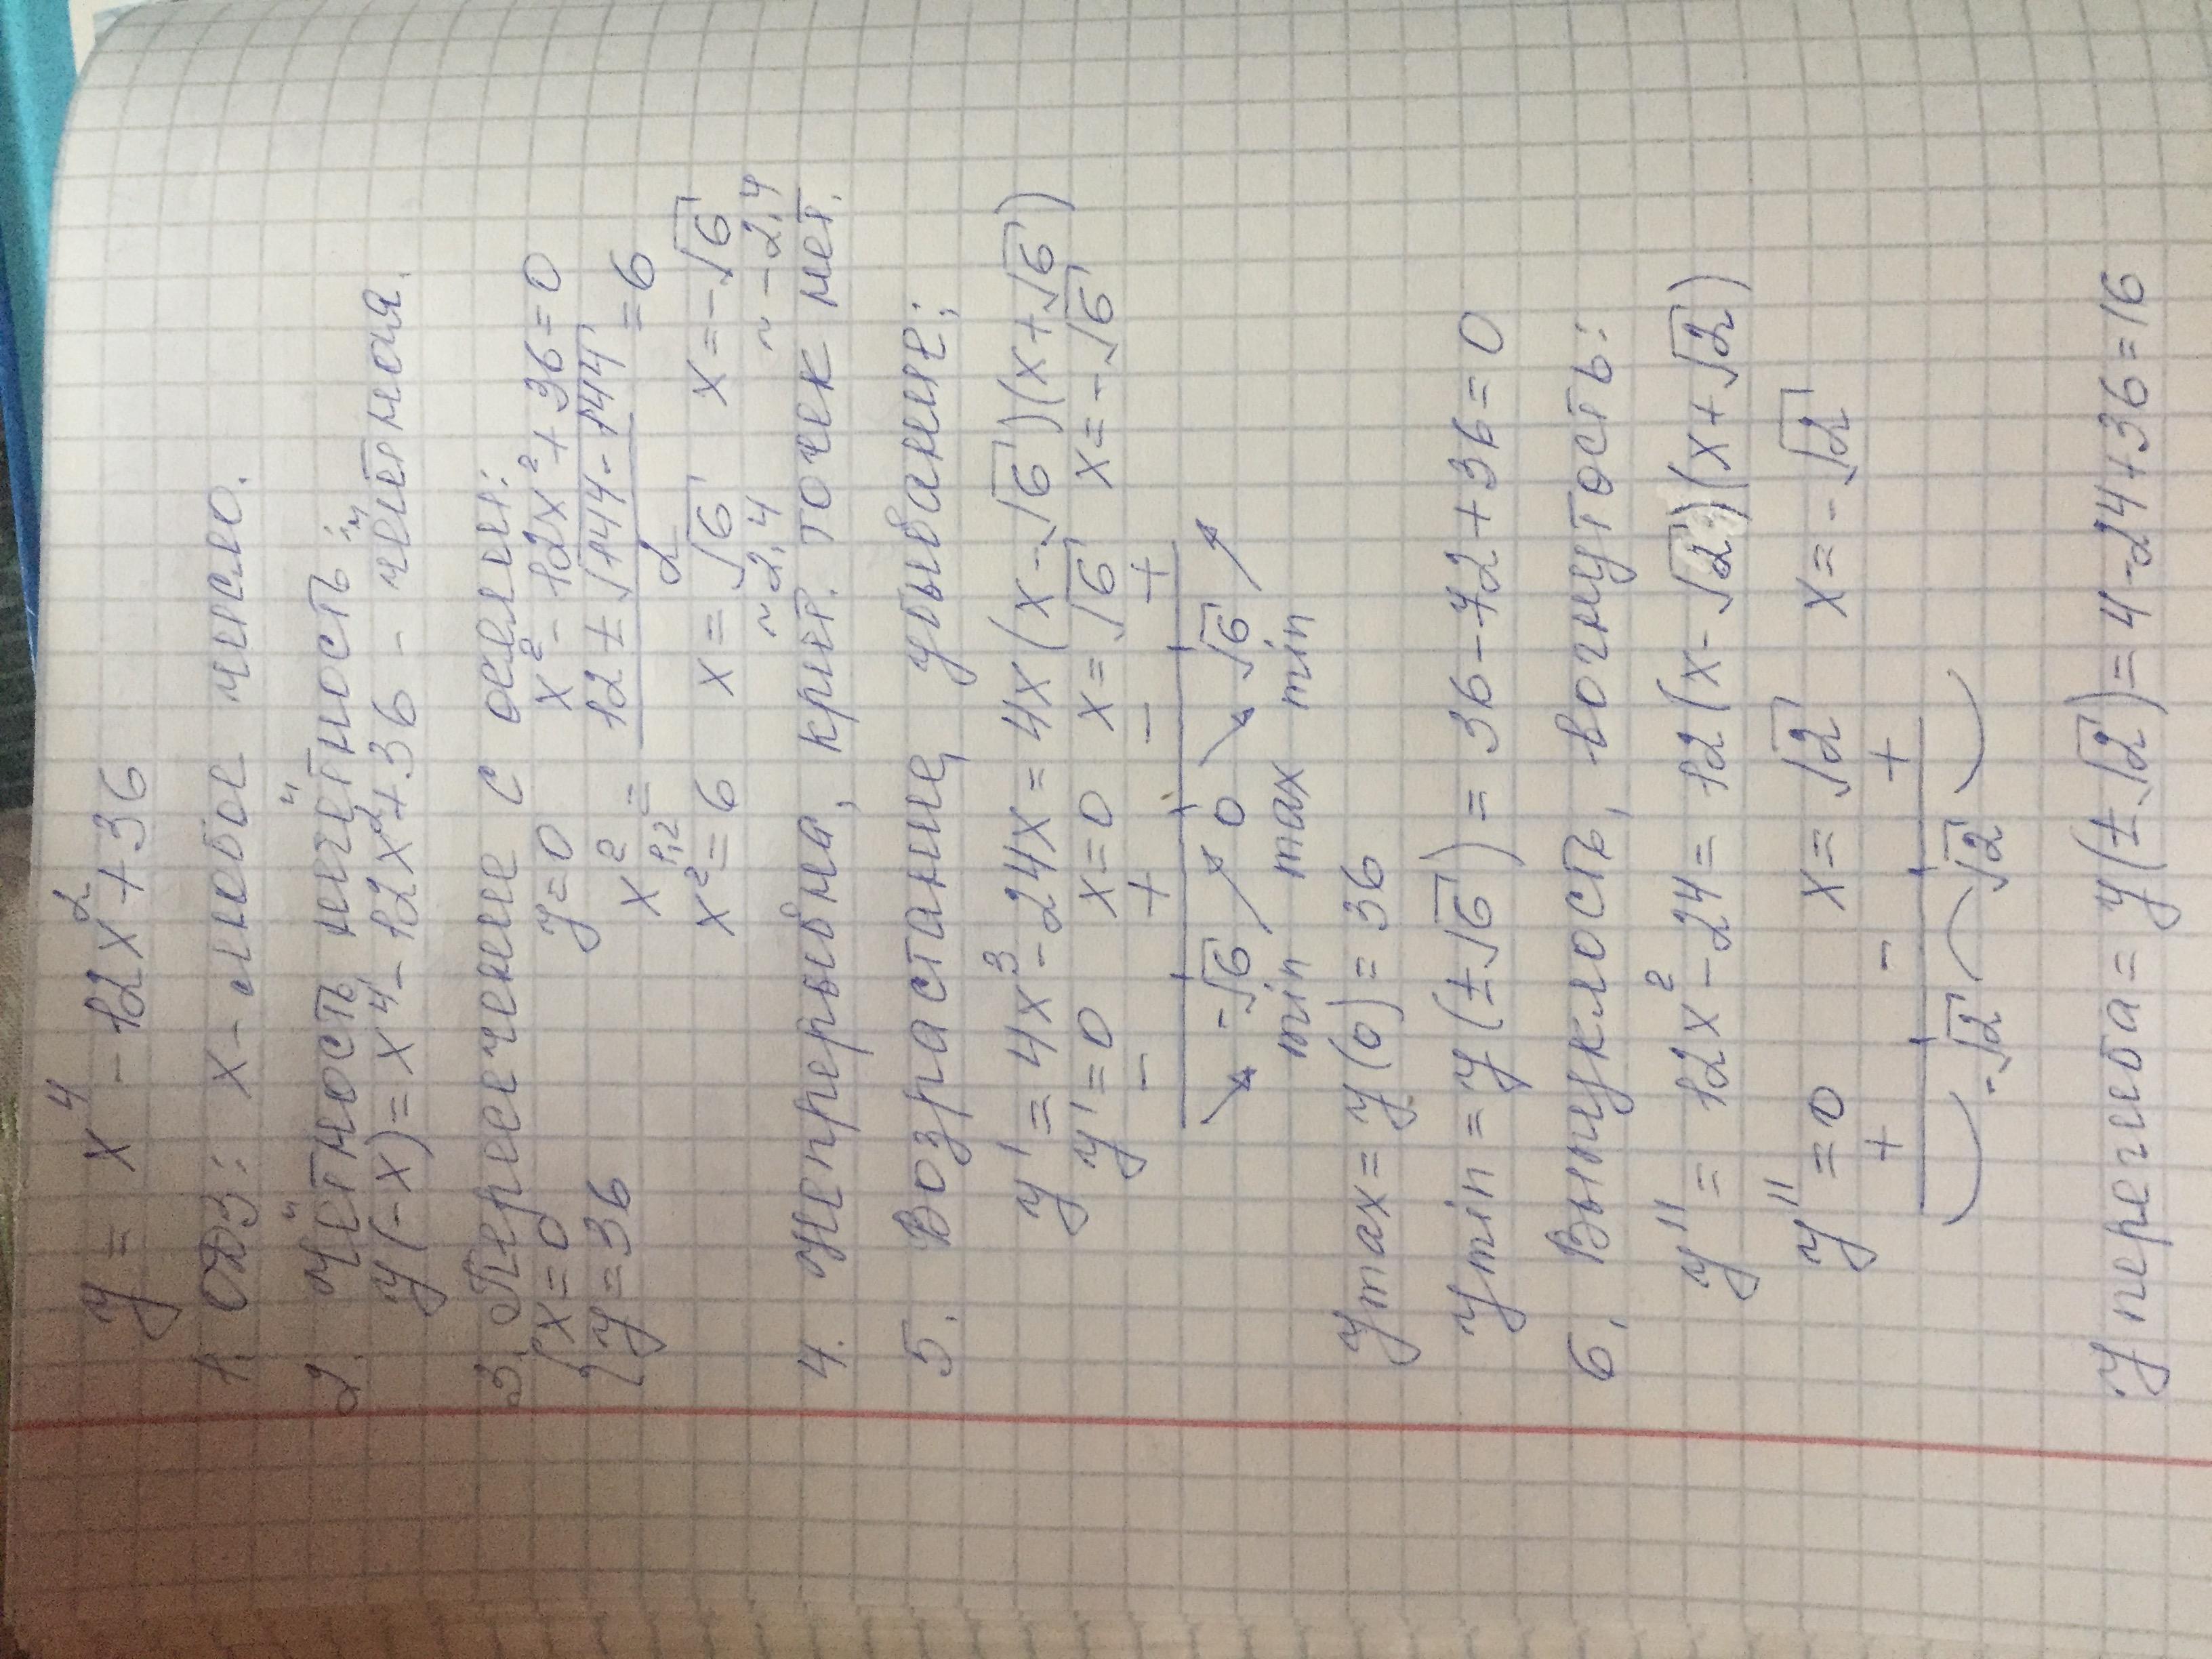 y = x⁴ - 12x² + 36
1. ОДЗ: x - любое число.
2. "Чётность нечётность":
y(-x) = x⁴ - 12x² + 36 - "чётная.
3. Пересечение с осями:
{x=0 y=0 x² - 12x² + 36 = 0
{y=36 x²₁,₂ = (12 ± √(144-144))/2 = 6
x² = 6 x = √6 x = -√6
~2,4 ~ -2,4
4. Непрерывна, крит. точек нет.
5. Возрастание, убывание:
y' = 4x³ - 24x = 4x(x-√6)(x+√6)
y' = 0 x = 0 x = √6 x = -√6
- + - +
-√6 0 √6
min max min
y max = y(0) = 36
y min = y(±√6) = 36 - 72 + 36 = 0
6. Выпуклость, вогнутость:
y'' = 12x² - 24 = 12(x-√2)(x+√2)
y'' = 0 x = √2 x = -√2
+ - +
-√2 √2
y перегиба = y(±√2) = 4 - 24 + 36 = 16